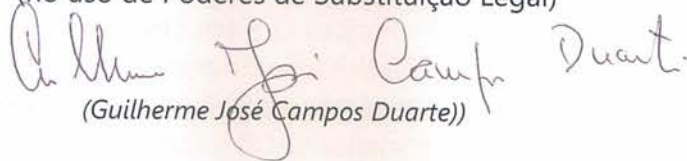 (no uso de Poderes de Substituição Legal)
Guilherme José Campos Duarte
(Guilherme José Campos Duarte))